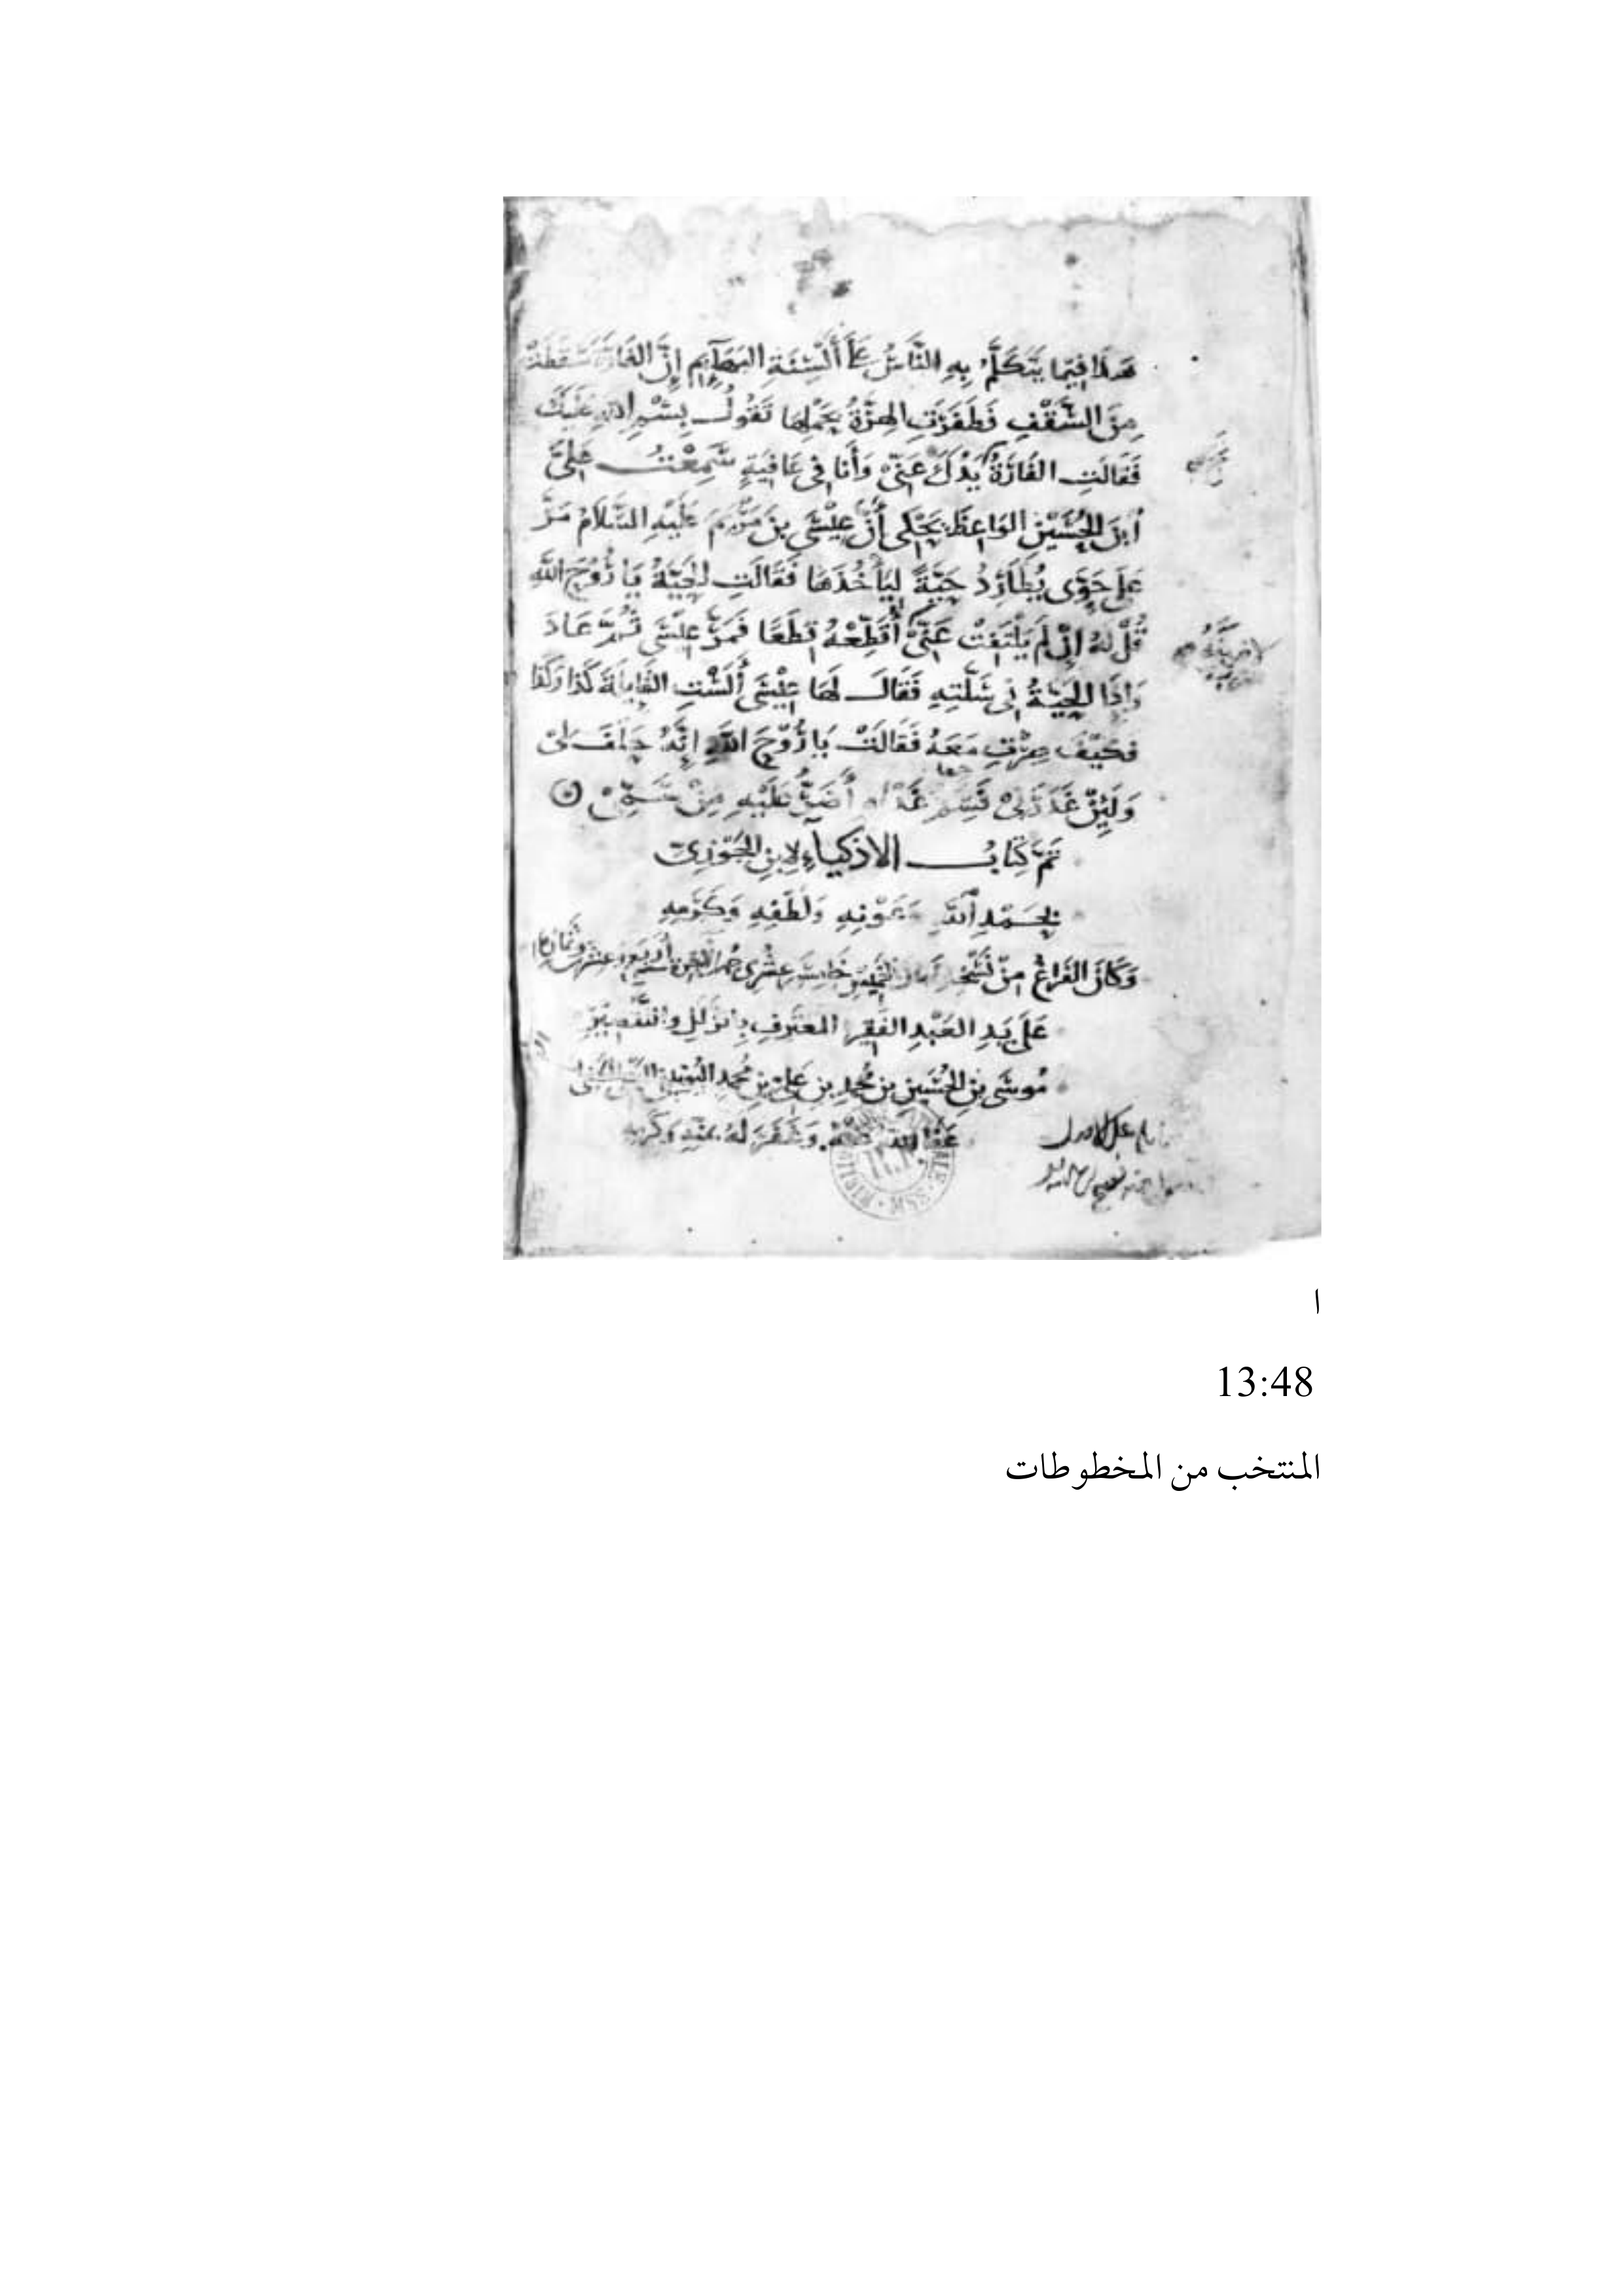 هَذَا فِيمَا يَتَكَلَّمُ بِهِ النَّاسُ عَلَى أَلْسِنَةِ البَهَآئِمِ إِنَّ الفَارَةَ سَقَطَتْ
مِنَ السَّقْفِ فَطَفَرَتِ الهِرَّةُ تَقُولُ بِسْمِ اللهِ عَلَيْكِ
فَقَالَتِ الفَارَةُ يَدُكِ عَنِّي وَأَنَا فِي عَافِيَةٍ سَمِعْتُ عَلِيَّ
ابْنَ الحُسَيْنِ الوَاعِظَ يَحْكِي أَنَّ عِيْسَى بنَ مَرْيَمَ عَلَيْهِ السَّلَامُ مَرَّ
عَلَى حَوَّى يُطَارِدُ حَيَّةً لِيَأْخُذَهَا فَقَالَتِ الحَيَّةُ يَا رُوْحَ اللهِ
قُلْ لَهُ إِنْ لَمْ يَلْتَفِتْ عَنِّي أُقَطِّعْهُ قِطَعًا فَمَرَّ عِيْسَى ثُمَّ عَادَ
وَإِذَا الحَيَّةُ فِي سَلَّتِهِ فَقَالَ لَهَا عِيْسَى أَلَسْتِ القَايِلَةَ كَذَا وَكَذَا
فَكَيْفَ صِرْتِ مَعَهُ فَقَالَتْ يَا رُوْحَ اللهِ إِنَّهُ حَلَفَ لِي
وَلَئِنْ غَدَرَ بِي فَسَمُّ غَدْرِهِ أَضَرُّ عَلَيْهِ مِنْ سَمِّيْ
تَمَّ كِتَابُ الاذكياءِ لِابنِ الجَوْزِيّ
بِحَمْدِ اللهِ وَعَوْنِهِ وَلُطْفِهِ وَكَرَمِهِ
وَكَانَ الفَرَاغُ مِنْ نَسْخِهِ الخَمِيْسِ خَامِسَ عِشْرِي
عَلَى يَدِ العَبْدِ الفَقِيْرِ المُعْتَرِفِ بِالزَّلَلِ وَالتَّقْصِيْرِ
مُوسَى بنِ الحُسَيْنِ بنِ مُحَمَّدِ بنِ عَلِيِّ بنِ مُحَمَّدِ
عَفَا اللهُ عَنْهُ وَغَفَرَ لَهُ بِمَنِّهِ وَكَرَمِهِ
ا
13:48
المنتخب من المخطوطات